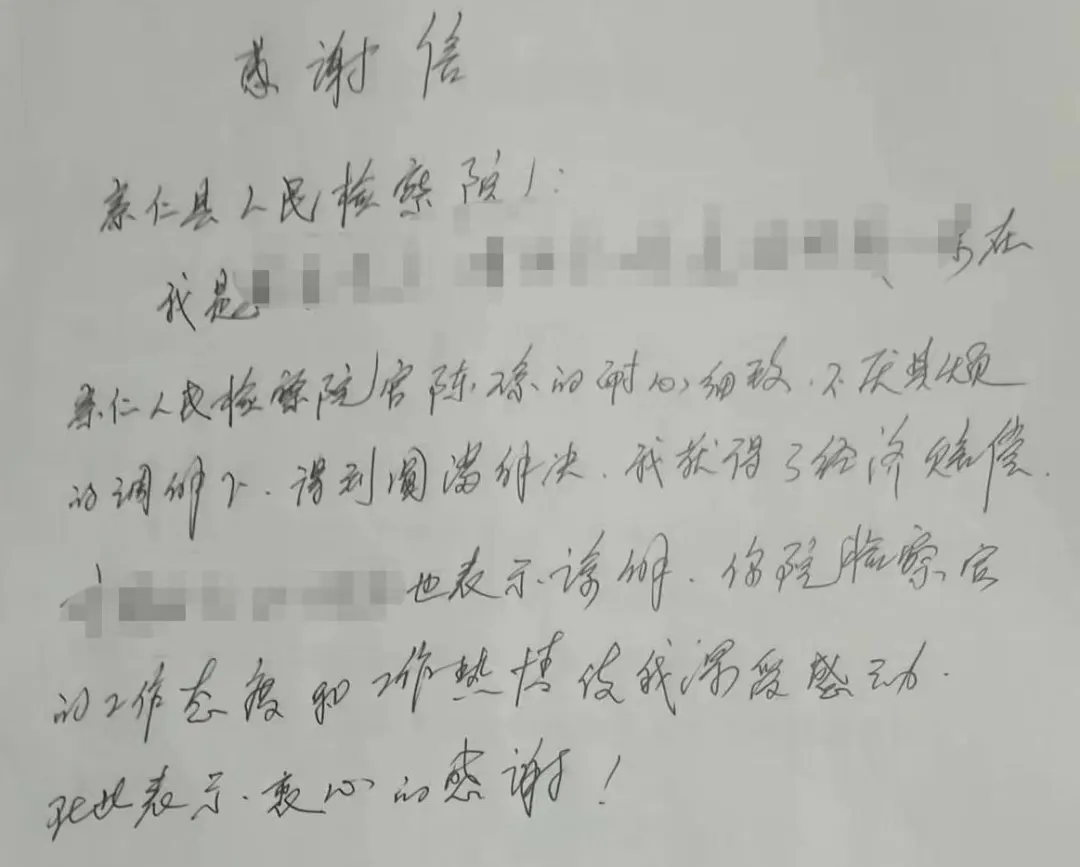 感谢信
崇仁县人民检察院:
我是 在
崇仁人民检察院官陈 的耐心细致、不厌其烦
的调解下、得到圆满解决、我获得了经济赔偿.
也表示谅解. 你院检察官
的工作态度和工作热情使我深受感动.
在此表示衷心的感谢!